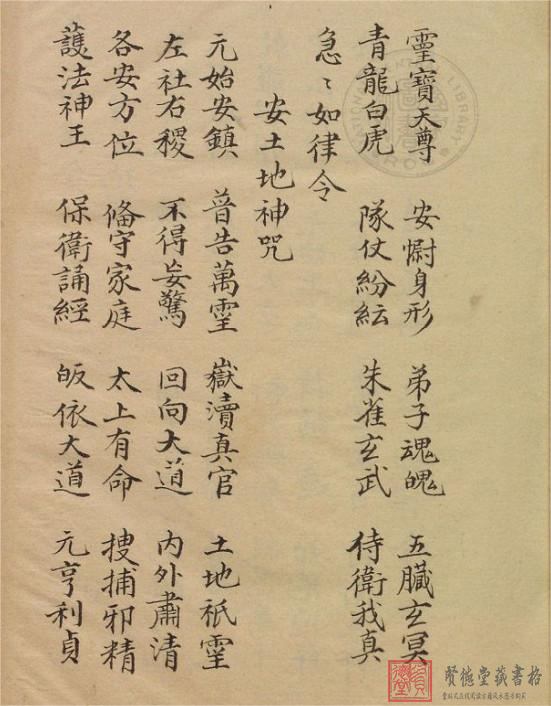 靈寶天尊 安慰身形 弟子魂魄 五臟玄冥
青龍白虎 隊仗紛紜 朱雀玄武 侍衛我真
急〻如律令
安土地神咒
元始安鎮 普告萬靈 嶽瀆真官 土地祇靈
左社右稷 不得妄驚 回向大道 內外肅清
各安方位 俻守家庭 太上有命 搜捕邪精
護法神王 保衛誦經 皈依大道 元亨利貞
賢德堂藏書格